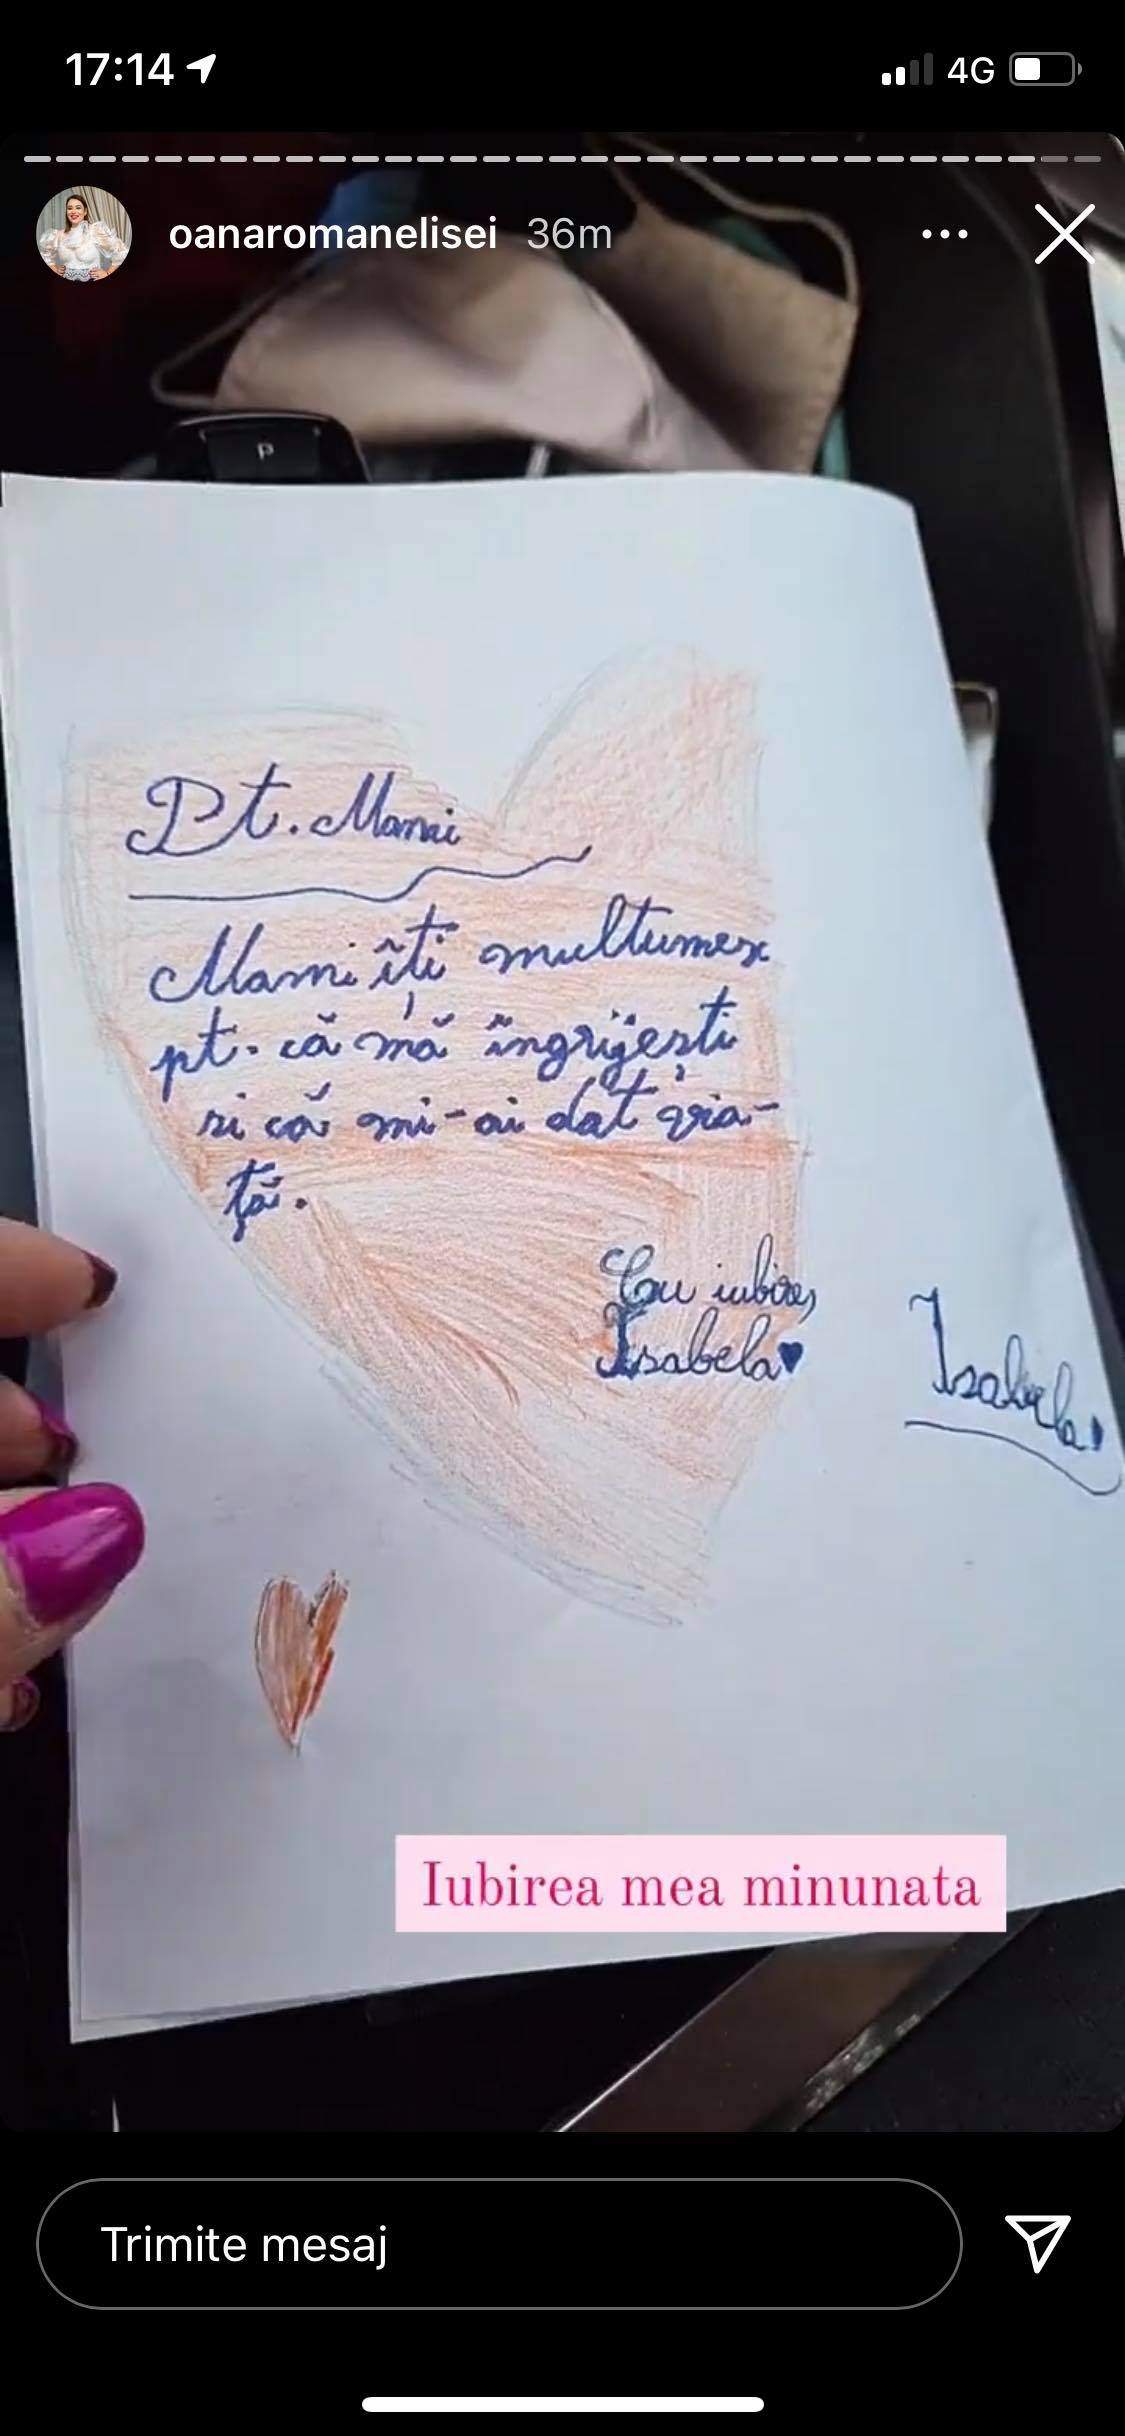 17:14
4G
oanaromanelisei 36m
P
Pt. Mami
Mami îti multumesc
pt. că mă îngrijești
si că mi-ai dat via-
ță.
Cu iubire,
Isabela
Isabela
Iubirea mea minunata
Trimite mesaj